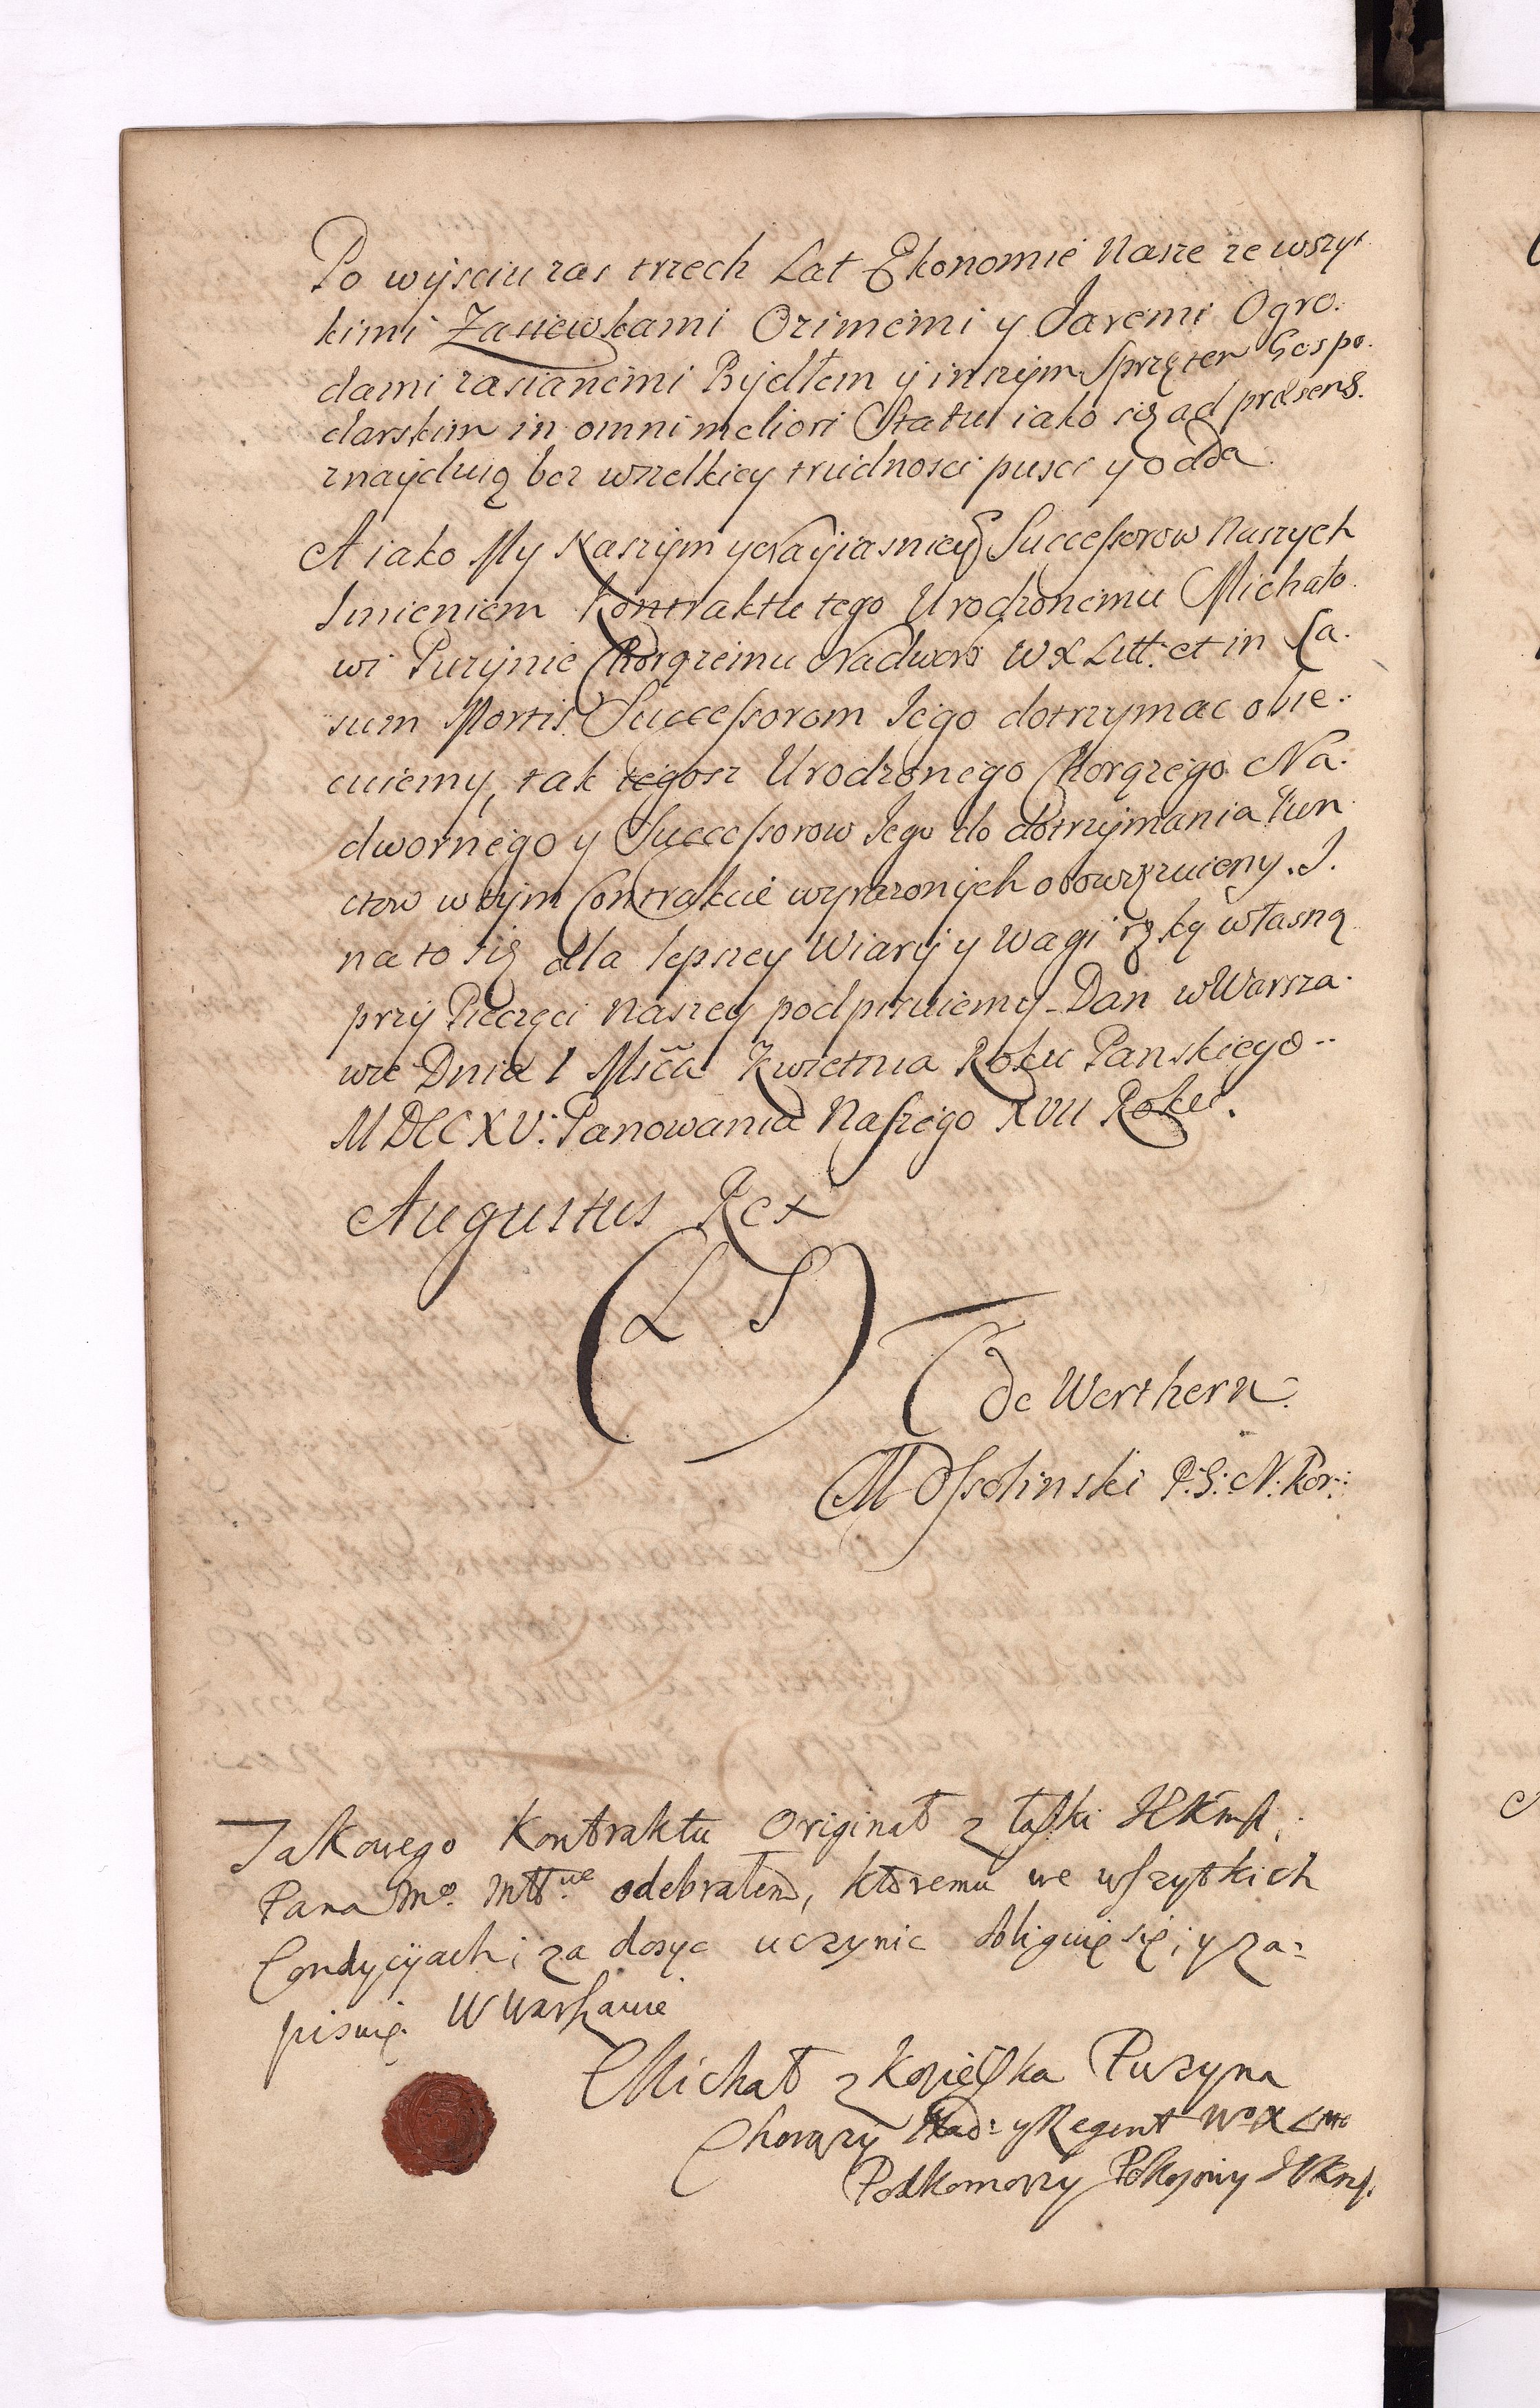 Po wyisciu zas trzech Lat Ekonomie Nasze ze wszyt
kimi Zasiewkami Ozimemi y Jaremi Ogro.
dami zasianemi Bydłem y inszym Sprzętem Gospo.
darskim in omni meliori Statu iako się ad præsens.
znayduią bez wszelkiey trudnosci pusci y odda.
A iako My Naszym y Nayiasnieyß Successorow Naszych
Imieniem Kontraktu tego Urodzonemu Michało
wi Puzynie Chorązemu Nadwor WX Litt. et in Ca.
sum Mortis Successorom Jego dotrzymac obie.
cuiemy, tak tegosz Urodzonego Chorązego Na.
dwornego y Successorow Jego do dotrzymania Pun
ctow w tym Contrakcie wyrazonych obowązuiemy. I.
na to się dla lepszey Wiary y Wagi ręką własną
przy Pieczęci Naszey podpisuiemy. Dan w Warsza.
wie Dnia 1 Mića Kwietnia Roku Panskiego..
MDCCXV. Panowania Naszego XVII Roku.
Augustus Rex
(L S)
de Werthern.
M Ossolinski P:S:N:Kor:
Takowego Kontraktu Originał z łaski JKMsci
Pana Mo. Mttwe odebrałem, ktoremu we wszytkich
Condycyach, za dosyc uczynic obliguię się, y za=
pisuię. W Warszawie
Michał z Kozielska Puzyna
Chorązy Nad: y Regent Wo X Litt
Podkomorzy Pokojowy JKMsc.